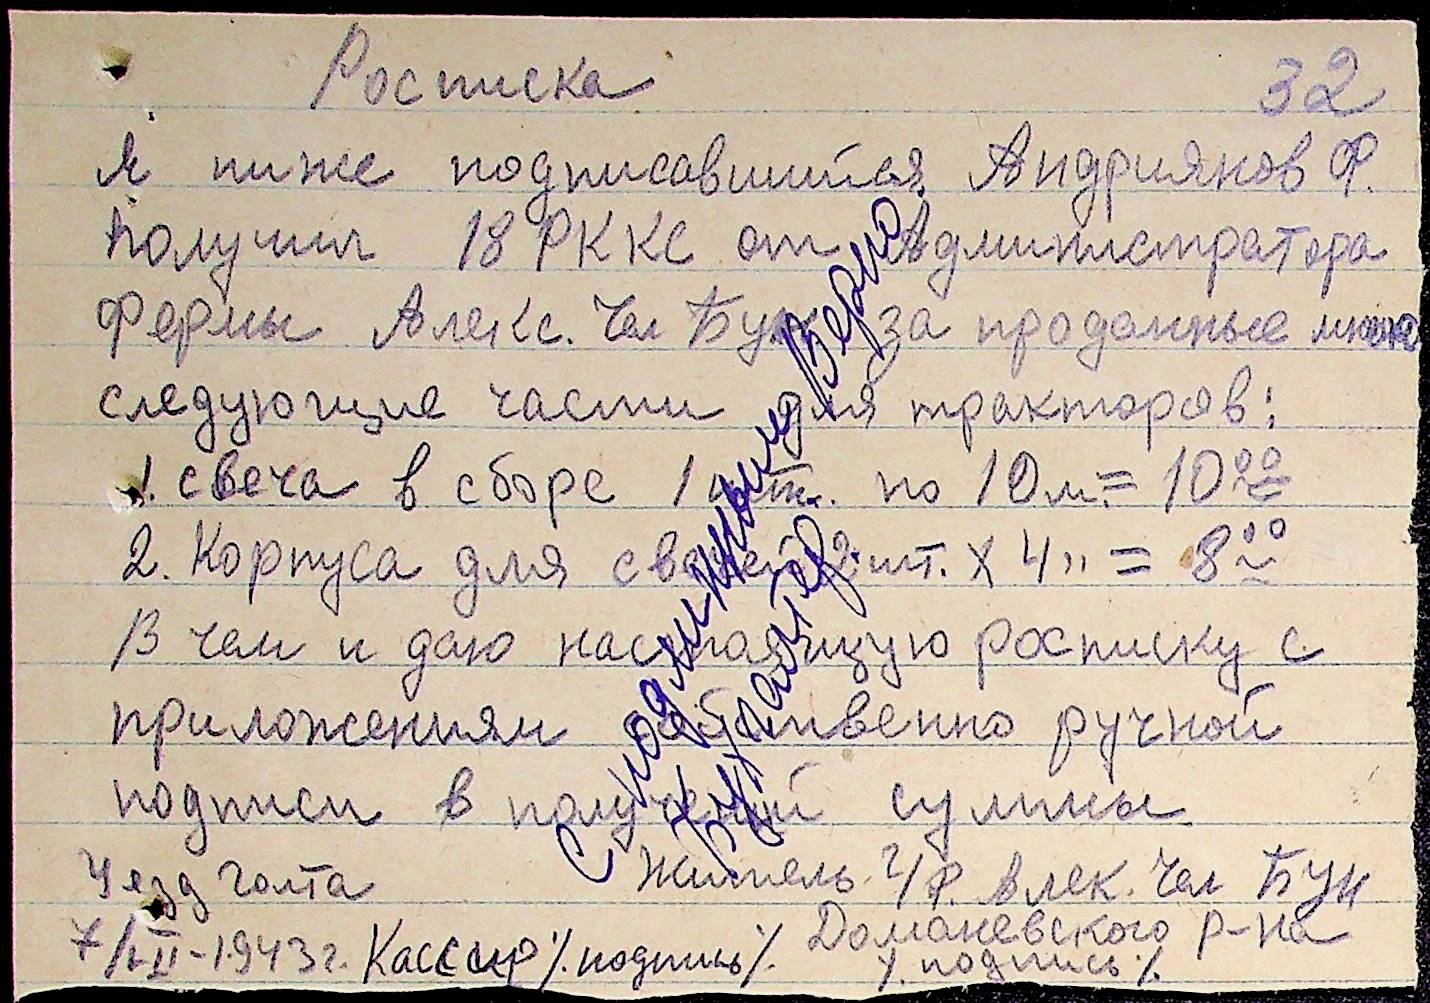 Росписка
32
Я ниже подписавшийся Андриянов Ф.
Получил 18 РККС от Администратора
Фермы Алекс. Чел Бун за проданные мною
следующие части для тракторов:
1. свеча в сборе 1 шт. по 10 м. = 10 00
2. Корпуса для свечей 2 шт. х 4 " = 8 00
В чем и даю настоящую росписку с
приложениям собственно ручной
подписи в получений суммы
Уезд Голта
Житель Ф. Алек. Чел Бун
Доманевского р-на
7/II-1943г. Кассир /.подпись/.
/.подпись./.
С подлинным Верно
Бухгалтер